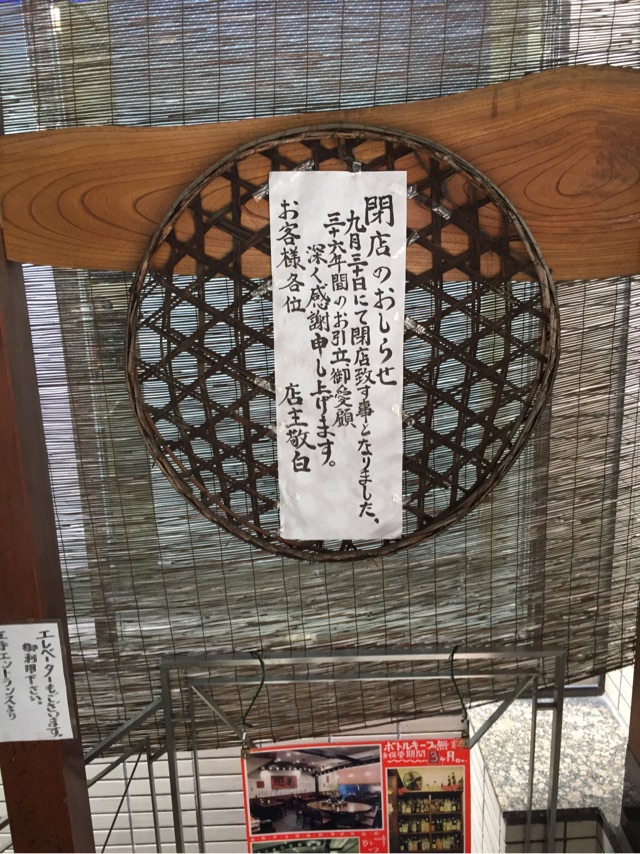 閉店のおしらせ
九月三十日にて閉店致す事となりました。
三十六年間のお引立御愛顧
深く感謝申し上げます。
お客様各位
店主敬白
エレベーターもございます。
御利用下さい。
ボトルキープ無料
3ヶ月。